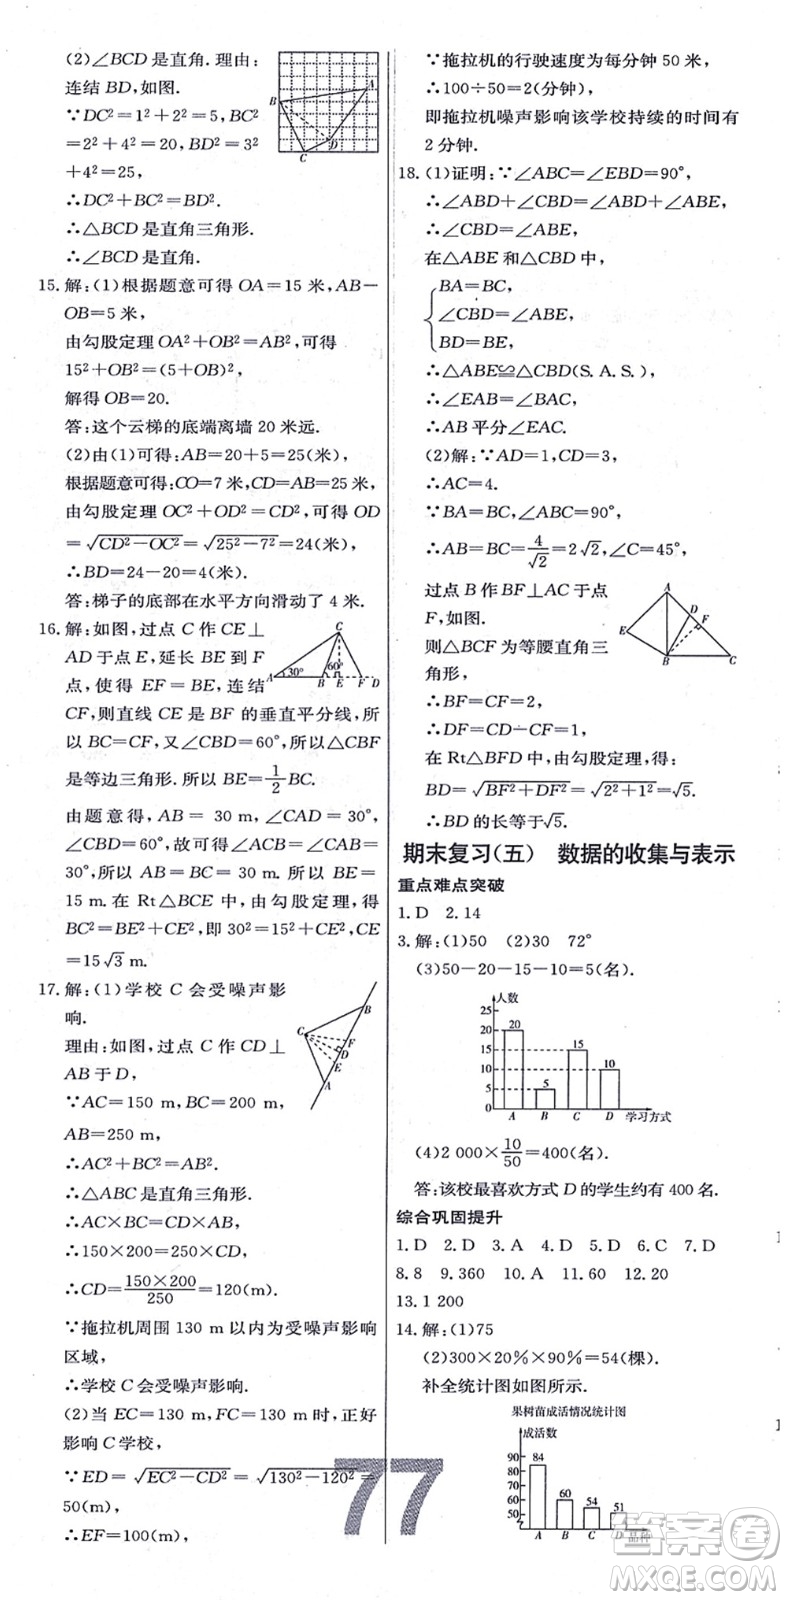 (2)∠BCD 是直角.理由:
连结 BD,如图.
∵DC²=1²+2²=5,BC²
=2²+4²=20,BD²=3²
+4²=25,
∴DC²+BC²=BD².
∴△BCD 是直角三角形.
∴∠BCD 是直角.
A
B
C
D
15.解:(1)根据题意可得 OA=15 米,AB-
OB=5 米,
由勾股定理 OA²+OB²=AB²,可得
15²+OB²=(5+OB)²,
解得 OB=20.
答:这个云梯的底端离墙 20 米远.
(2)由(1)可得:AB=20+5=25(米),
根据题意可得:CO=7 米,CD=AB=25 米,
由勾股定理 OC²+OD²=CD²,可得 OD
=√(CD²-OC²)=√(25²-7²)=24(米),
∴BD=24-20=4(米).
答:梯子的底部在水平方向滑动了 4 米.
16.解:如图,过点 C 作 CE⊥
AD 于点 E,延长 BE 到 F
点,使得 EF=BE,连结
CF,则直线 CE 是 BF 的垂直平分线,所
以 BC=CF,又∠CBD=60°,所以△CBF
是等边三角形.所以 BE=1/2BC.
由题意得,AB=30 m,∠CAD=30°,
∠CBD=60°,故可得∠ACB=∠CAB=
30°,所以 AB=BC=30 m.所以 BE=
15 m.在 Rt△BCE 中,由勾股定理,得
BC²=BE²+CE²,即 30²=15²+CE²,CE
=15√3 m.
C
30°
60°
A B E F D
17.解:(1)学校 C 会受噪声影
响.
理由:如图,过点 C 作 CD⊥
AB 于 D,
∵AC=150 m,BC=200 m,
AB=250 m,
∴AC²+BC²=AB².
∴△ABC 是直角三角形.
∴AC×BC=CD×AB,
∴150×200=250×CD,
∴CD=150×200/250=120(m).
∵拖拉机周围 130 m 以内为受噪声影响
区域,
∴学校 C 会受噪声影响.
(2)当 EC=130 m,FC=130 m 时,正好
影响 C 学校,
∵ED=√(EC²-CD²)=√(130²-120²)=
50(m),
∴EF=100(m),
B
C
F
D
E
A
∵拖拉机的行驶速度为每分钟 50 米,
∴100÷50=2(分钟),
即拖拉机噪声影响该学校持续的时间有
2 分钟.
18.(1)证明:∵∠ABC=∠EBD=90°,
∴∠ABD+∠CBD=∠ABD+∠ABE,
∴∠CBD=∠ABE,
在△ABE 和△CBD 中,
BA=BC,
∠CBD=∠ABE,
BD=BE,
∴△ABE≌△CBD(S.A.S.),
∴∠EAB=∠C=∠BAC,
∴AB 平分∠EAC.
(2)解:∵AD=1,CD=3,
∴AC=4.
∵BA=BC,∠ABC=90°,
∴AB=BC=4/√2=2√2,∠C=45°,
过点 B 作 BF⊥AC 于点
F,如图.
则△BCF 为等腰直角三
角形,
∴BF=CF=2,
∴DF=CD-CF=1,
在 Rt△BFD 中,由勾股定理,得
BD=√(BF²+DF²)=√(2²+1²)=√5.
∴BD 的长等于√5.
A
D
F
E
B
C
期末复习(五) 数据的收集与表示
重点难点突破
1.D 2.14
3.解:(1)50 (2)30 72°
(3)50-20-15-10=5(名).
人数
25
20
15
10
5
0
20
5
15
10
A B C D 学习方式
(4)2 000×10/50=400(名).
答:该校最喜欢方式 D 的学生约有 400 名.
综合巩固提升
1.D 2.D 3.A 4.D 5.D 6.C 7.D
8.8 9.360 10.A 11.60 12.20
13.1 200
14.解:(1)75
(2)300×20%×90%=54(棵).
补全统计图如图所示.
果树苗成活情况统计图
成活数
90
80
70
60
50
84
60
54
51
A B C D 品种
77
答案圈
MXQE.COM